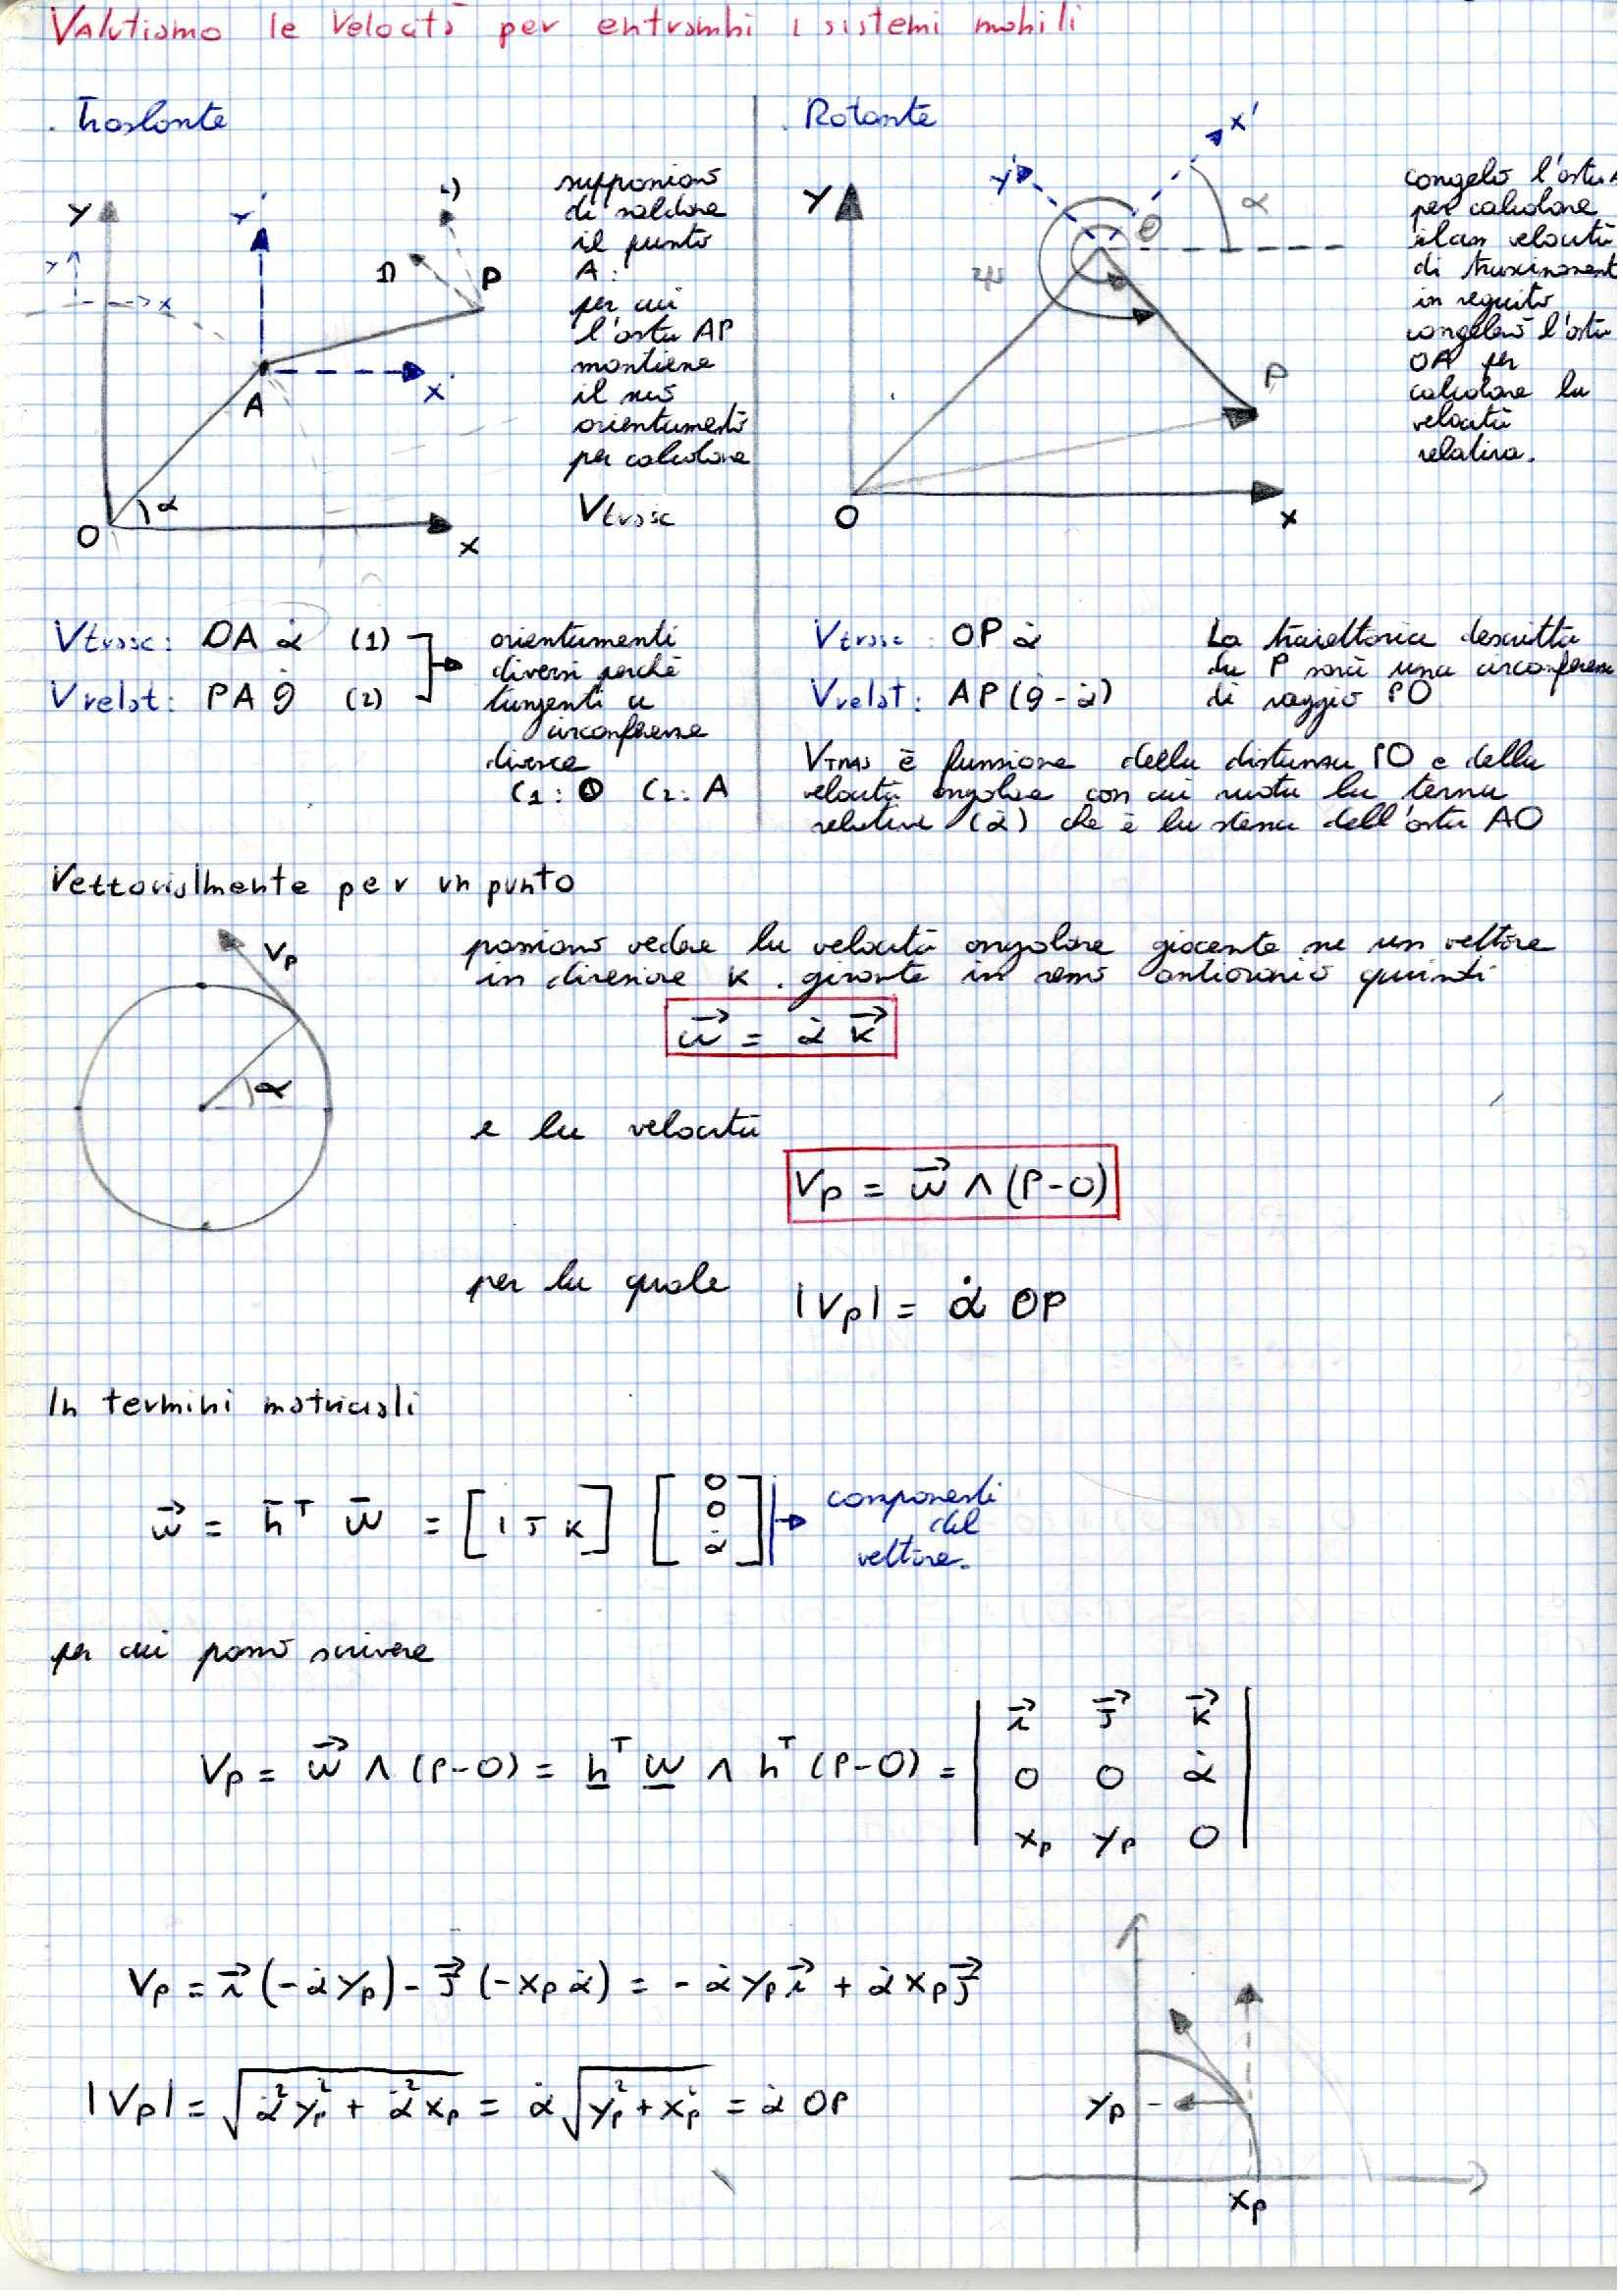 Valutiamo le velocità per entrambi i sistemi mobili
. Traslante
Y
Y'
X'
y
x
A
O
α
X
1)
2)
P
supponiamo
di saldare
il punto
A:
per cui
l'asta AP
mantiene
il suo
orientamento
per calcolare
Vtrasc
. Rotante
Y
Y'
X'
α
θ
P
O
X
congelo l'asta A
per calcolare
velocità
di trascinament
in seguito
congelerò l'asta
OA per
calcolare la
velocità
relativa.
Vtrasc: OA α̇ (1)
Vrelat: PA θ̇ (2)
orientamenti
diversi perchè
tangenti a
circonferenze
diverse
C1: O C2: A
Vtrasc: OP α̇
Vrelat: AP (θ̇ - α̇)
La traiettoria descritta
da P sarà una circonferenza
di raggio PO
VTRAS è funzione della distanza PO e della
velocità angolare con cui ruota la terna
relativa (α̇) che è la stessa dell'asta AO
Vettorialmente per un punto
Vp
α
possiamo vedere la velocità angolare giacente su un vettore
in direzione K. girante in senso antiorario quindi
w⃗ = α̇ k⃗
e la velocità
Vp = w⃗ ∧ (P-O)
per la quale |Vp| = α̇ OP
In termini matriciali
w⃗ = h̄ᵀ w̄ = [i J K] [0 0 α̇]
componenti
del
vettore.
per cui posso scrivere
Vp = w⃗ ∧ (P-O) = hᵀ w ∧ hᵀ (P-O) = | i⃗ J⃗ K⃗
0 0 α̇
xp yp 0 |
Vp = i⃗ (-α̇ yp) - J⃗ (-xp α̇) = - α̇ yp i⃗ + α̇ xp J⃗
|Vp| = √(α̇² yp² + α̇² xp²) = α̇ √(yp² + xp²) = α̇ OP
yp
xp